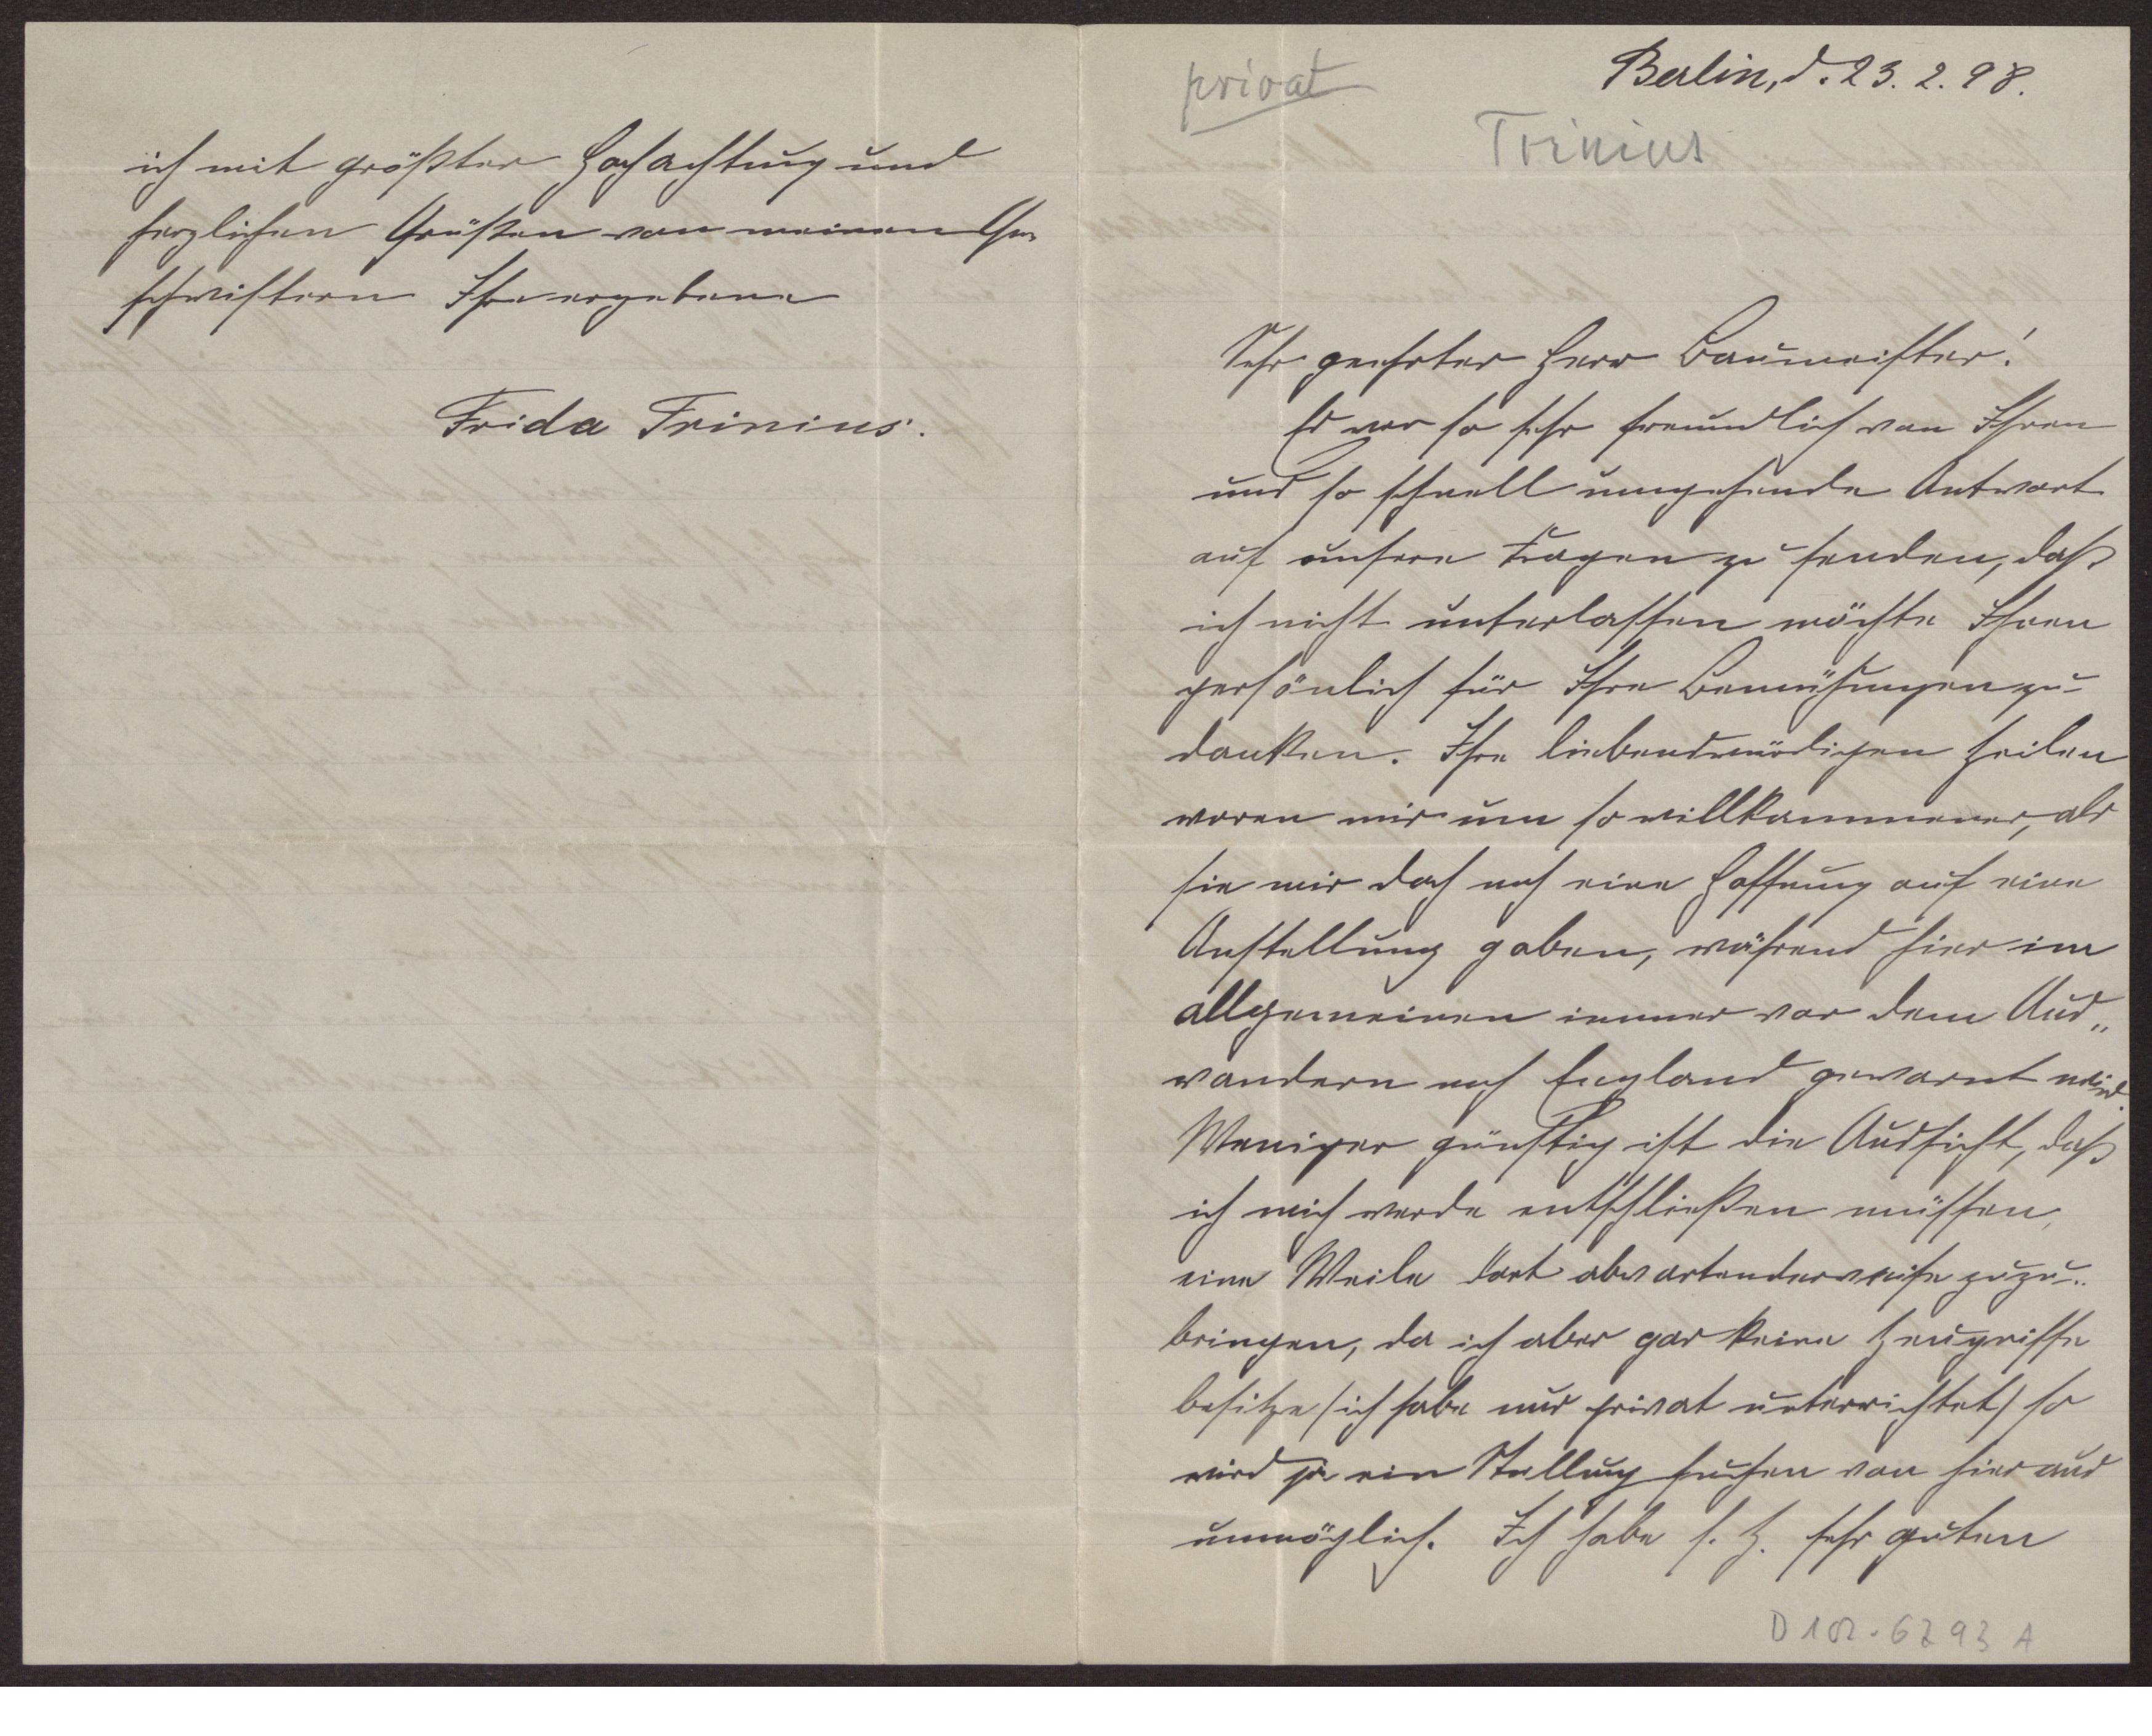 privat
Berlin, d. 23. 2. 98.
Trinius
Sehr geehrter Herr Baumeister!
Es war so sehr freundlich von Ihnen
uns so schnell umgehende Antwort
auf unsere Fragen zu senden, daß
ich nicht unterlassen möchte Ihnen
persönlich für Ihre Bemühungen zu
danken. Ihre liebenswürdigen Zeilen
waren mir um so willkommener, als
sie mir doch noch eine Hoffnung auf eine
Anstellung gaben, während hier im
allgemeinen immer vor dem Aus„
wandern nach England gewarnt wird.
Weniger günstig ist die Aussicht, daß
ich mich werde entschließen müssen,
eine Weile dort abwartenderweise zuzu„
bringen, da ich aber gar keine Zeugnisse
besitze (ich habe nur privat unterrichtet) so
wird ja ein Stellung suchen von hier aus
unmöglich. Ich habe s. Z. sehr guten
D 102-6793 A
ich mit größter Hochachtung und
herzlichen Grüßen von meinen Ge„
schwistern Ihre ergebene
Frida Trinius.